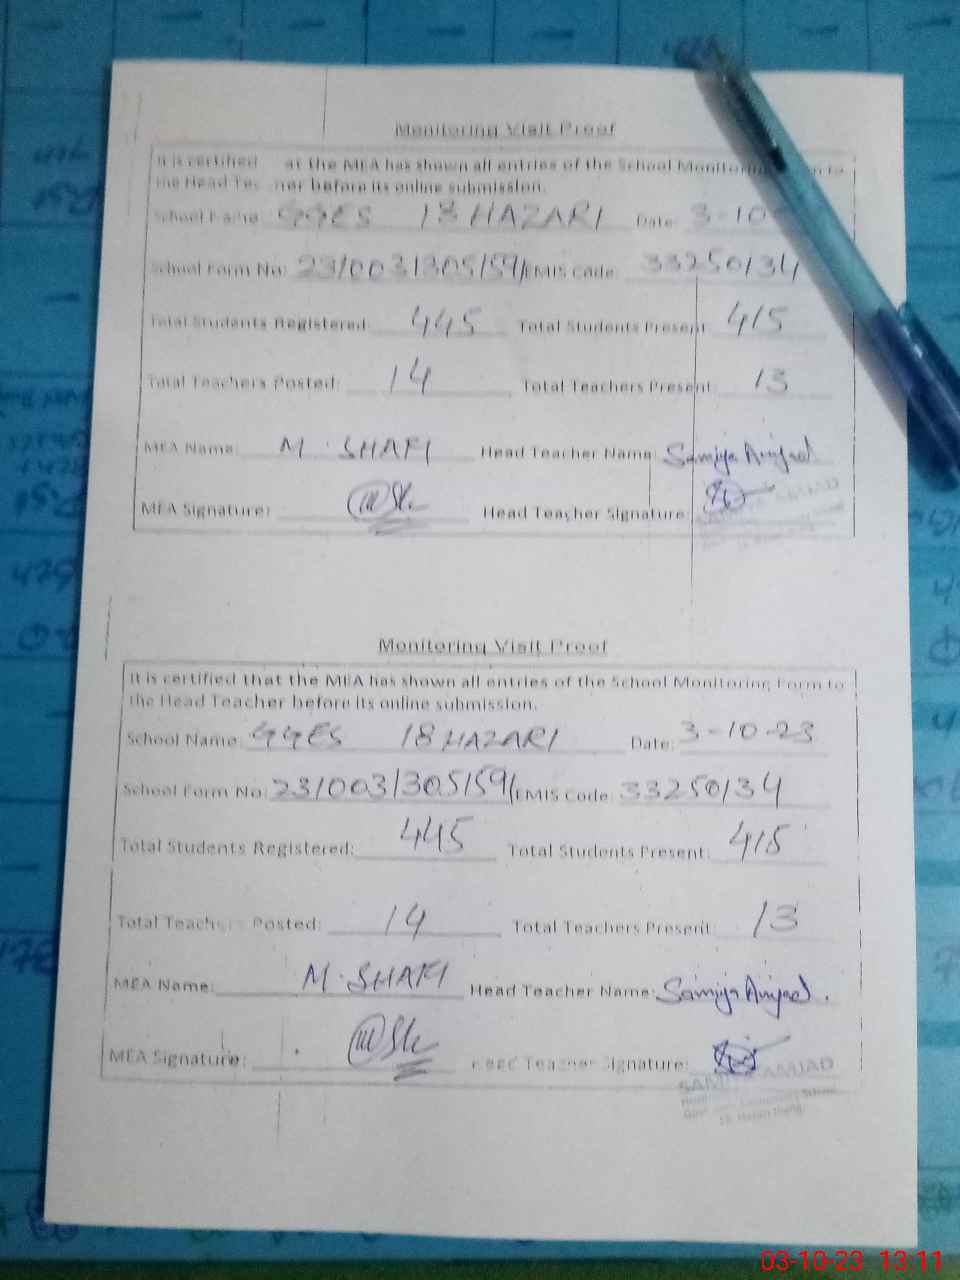 Monitoring Visit Proof
It is certified at the MEA has shown all entries of the School Monitoring to
the Head Teacher before its online submission.
School Name: GGES 18 HAZARI Date: 3-10-
School Form No: 23/003/305/159/ EMIS Code: 33250134
Total Students Registered: 445 Total Students Present: 415
Total Teachers Posted: 14 Total Teachers Present: 13
MEA Name: M. SHAFI Head Teacher Name: Samiya Amjad
MEA Signature: Head Teacher Signature:
AMJAD
Monitoring Visit Proof
It is certified that the MEA has shown all entries of the School Monitoring Form to
the Head Teacher before its online submission.
School Name: GGES 18 HAZARI Date: 3-10-23
School Form No: 23/003/305/159/ EMIS Code: 33250134
Total Students Registered: 445 Total Students Present: 415
Total Teachers Posted: 14 Total Teachers Present: 13
MEA Name: M. SHAFI Head Teacher Name: Samiya Amjad.
MEA Signature: Head Teacher Signature:
SAMIYA AMJAD
03-10-23 13:11